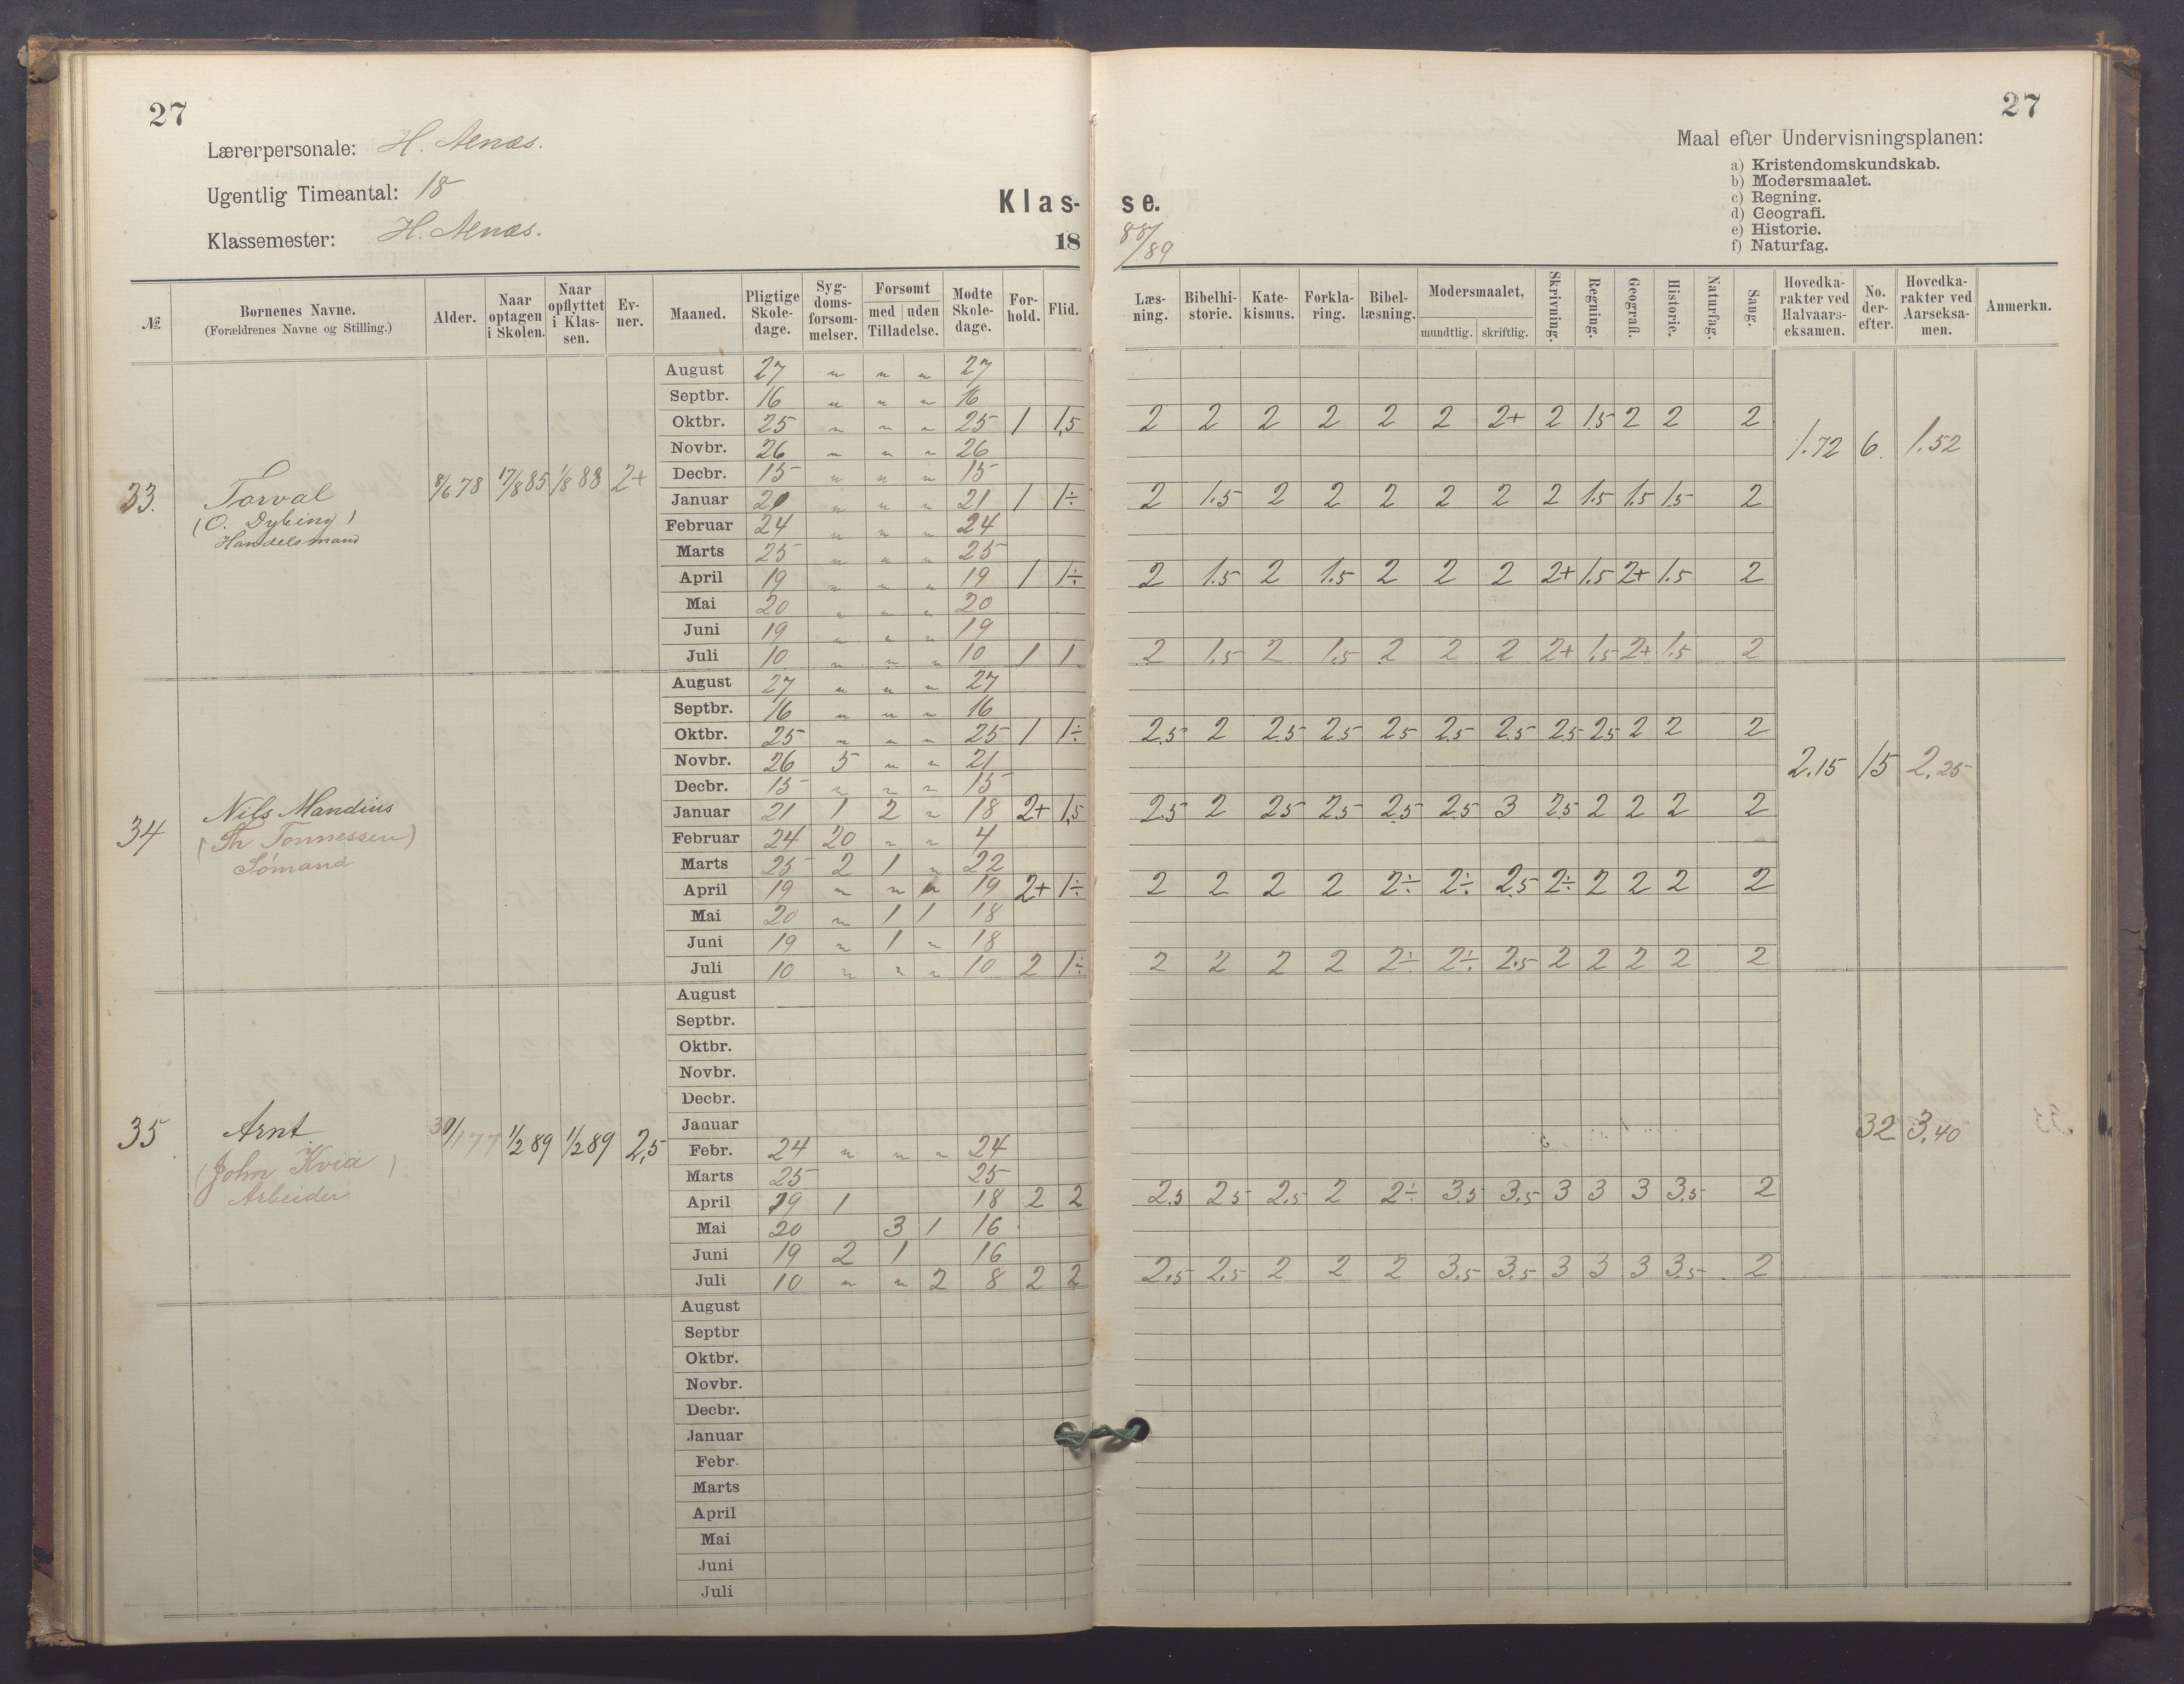 27
27
Lærerpersonale: H. Aenæs.
Ugentlig Timeantal: 18
Klassemester: H. Aenæs.
Klas- se.
18 88/89
Maal efter Undervisningsplanen:
a) Kristendomskundskab.
b) Modersmaalet.
c) Regning.
d) Geografi.
e) Historie.
f) Naturfag.
№ | Børnenes Navne. (Forældrenes Navne og Stilling.) | Alder. | Naar optagen i Skolen. | Naar opflyttet i Klassen. | Evner. | Maaned. | Pligtige Skoledage. | Sygdomsforsømmelser. | Forsømt med uden Tilladelse. | Mødte Skoledage. | Forhold. | Flid. | Læsning. | Bibelhistorie. | Katekismus. | Forklaring. | Bibellæsning. | Modersmaalet, mundtlig. skriftlig. | Skrivning. | Regning. | Geografi. | Historie. | Naturfag. | Sang. | Hovedkarakter ved Halvaarseksamen. | No. derefter. | Hovedkarakter ved Aarseksamen. | Anmerkn.
33. Torval
(O. Dybing)
Handelsmand
8/6 78 17/8 85 1/8 88 2+
August 27 " " " 27
Septbr. 16 " " " 16
Oktbr. 25 " " " 25 1 1,5 2 2 2 2 2 2 2+ 2 1.5 2 2 2
Novbr. 26 " " " 26
1.72 6. 1.52
Decbr. 15 " " " 15
Januar 21 " " " 21 1 1÷ 2 1.5 2 2 2 2 2 2 1.5 1.5 1.5 2
Februar 24 " " " 24
Marts 25 " " " 25
April 19 " " " 19 1 1÷ 2 1.5 2 1.5 2 2 2 2+ 1.5 2+ 1.5 2
Mai 20 " " " 20
Juni 19 " " " 19
Juli 10 " " " 10 1 1 2 1.5 2 1.5 2 2 2 2+ 1.5 2+ 1.5 2
34 Nils Mandius
(Th Tonnessen)
Sömand
August 27 " " " 27
Septbr. 16 " " " 16
Oktbr. 25 " " " 25 1 1÷ 2.5 2 2.5 2.5 2.5 2.5 2.5 2.5 2.5 2 2 2
Novbr. 26 5 " " 21
2.15 15 2.25
Decbr. 15 " " " 15
Januar 21 1 2 " 18 2+ 1,5 2.5 2 2.5 2.5 2.5 2.5 3 2.5 2 2 2 2
Februar 24 20 " " 4
Marts 25 2 1 " 22
April 19 " " " 19 2+ 1÷ 2 2 2 2 2÷ 2÷ 2.5 2÷ 2 2 2 2
Mai 20 " 1 1 18
Juni 19 " 1 " 18
Juli 10 " " " 10 2 1÷ 2 2 2 2 2÷ 2÷ 2.5 2 2 2 2 2
35 Arnt
(John Kvia)
Arbeider
30/1 77 1/2 89 1/2 89 2,5
August
Septbr.
Oktbr.
Novbr.
Decbr.
Januar
32 3.40
Febr. 24 " " " 24
Marts 25 25
April 19 1 18 2 2 2.5 2.5 2.5 2 2÷ 3.5 3.5 3 3 3 3.5 2
Mai 20 3 1 16
Juni 19 2 1 16
Juli 10 " " 2 8 2 2 2.5 2.5 2 2 2 3.5 3.5 3 3 3 3.5 2
August
Septbr
Oktbr.
Novbr.
Decbr.
Januar
Febr.
Marts
April
Mai
Juni
Juli